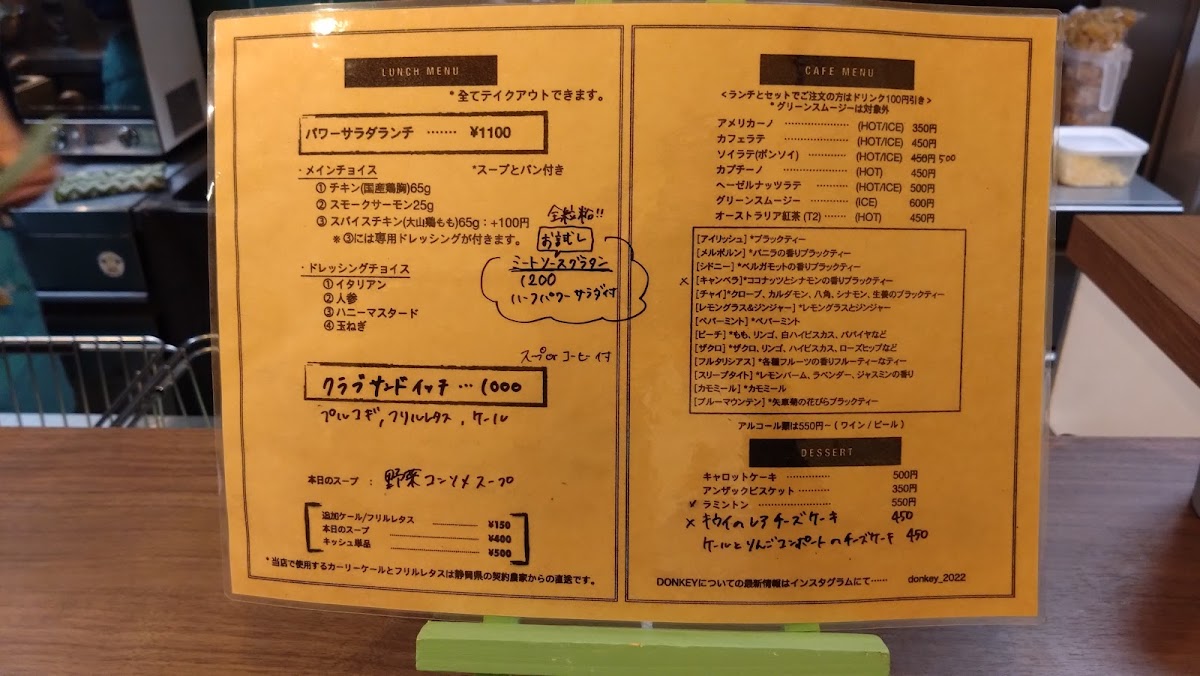 LUNCH MENU
*全てテイクアウトできます。
パワーサラダランチ ······· ¥1100
・メインチョイス *スープとパン付き
① チキン(国産鶏胸)65g
② スモークサーモン25g
③ スパイスチキン(大山鶏もも)65g：+100円
※③には専用ドレッシングが付きます。
全粒粉!!
お試し
ミートソースグラタン
1200
ハーフパワーサラダ付
・ドレッシングチョイス
① イタリアン
② 人参
③ ハニーマスタード
④ 玉ねぎ
スープorコーヒー付
クラブサンドイッチ … 1000
プルコギ, フリルレタス, ケール
本日のスープ ： 野菜コンソメスープ
追加ケール/フリルレタス ¥150
本日のスープ ¥400
キッシュ単品 ¥500
*当店で使用するカーリーケールとフリルレタスは静岡県の契約農家からの直送です。
CAFE MENU
<ランチとセットでご注文の方はドリンク100円引き>
*グリーンスムージーは対象外
アメリカーノ ················ (HOT/ICE) 350円
カフェラテ ················ (HOT/ICE) 450円
ソイラテ(ボンソイ) ·········· (HOT/ICE) 450円 500
カプチーノ ················ (HOT) 450円
ヘーゼルナッツラテ ·········· (HOT/ICE) 500円
グリーンスムージー ·········· (ICE) 600円
オーストラリア紅茶 (T2) ······ (HOT) 450円
[アイリッシュ] *ブラックティー
[メルボルン] *バニラの香りブラックティー
[シドニー] *ベルガモットの香りブラックティー
× [キャンベラ] *ココナッツとシナモンの香りブラックティー
[チャイ] *クローブ、カルダモン、八角、シナモン、生姜のブラックティー
[レモングラス&ジンジャー] *レモングラスとジンジャー
[ペパーミント] *ペパーミント
[ピーチ] *もも、リンゴ、白ハイビスカス、パパイヤなど
[ザクロ] *ザクロ、リンゴ、ハイビスカス、ローズヒップなど
[フルタリシアス] *各種フルーツの香りフルーティーなティー
[スリープタイト] *レモンバーム、ラベンダー、ジャスミンの香り
[カモミール] *カモミール
[ブルーマウンテン] *矢車菊の花びらブラックティー
アルコール類は550円~（ワイン / ビール）
DESSERT
キャロットケーキ ·············· 500円
アンザックビスケット ·········· 350円
✓ ラミントン ·················· 550円
× キウイのレアチーズケーキ 450
ケールとりんごコンポートのチーズケーキ 450
DONKEYについての最新情報はインスタグラムにて······ donkey_2022